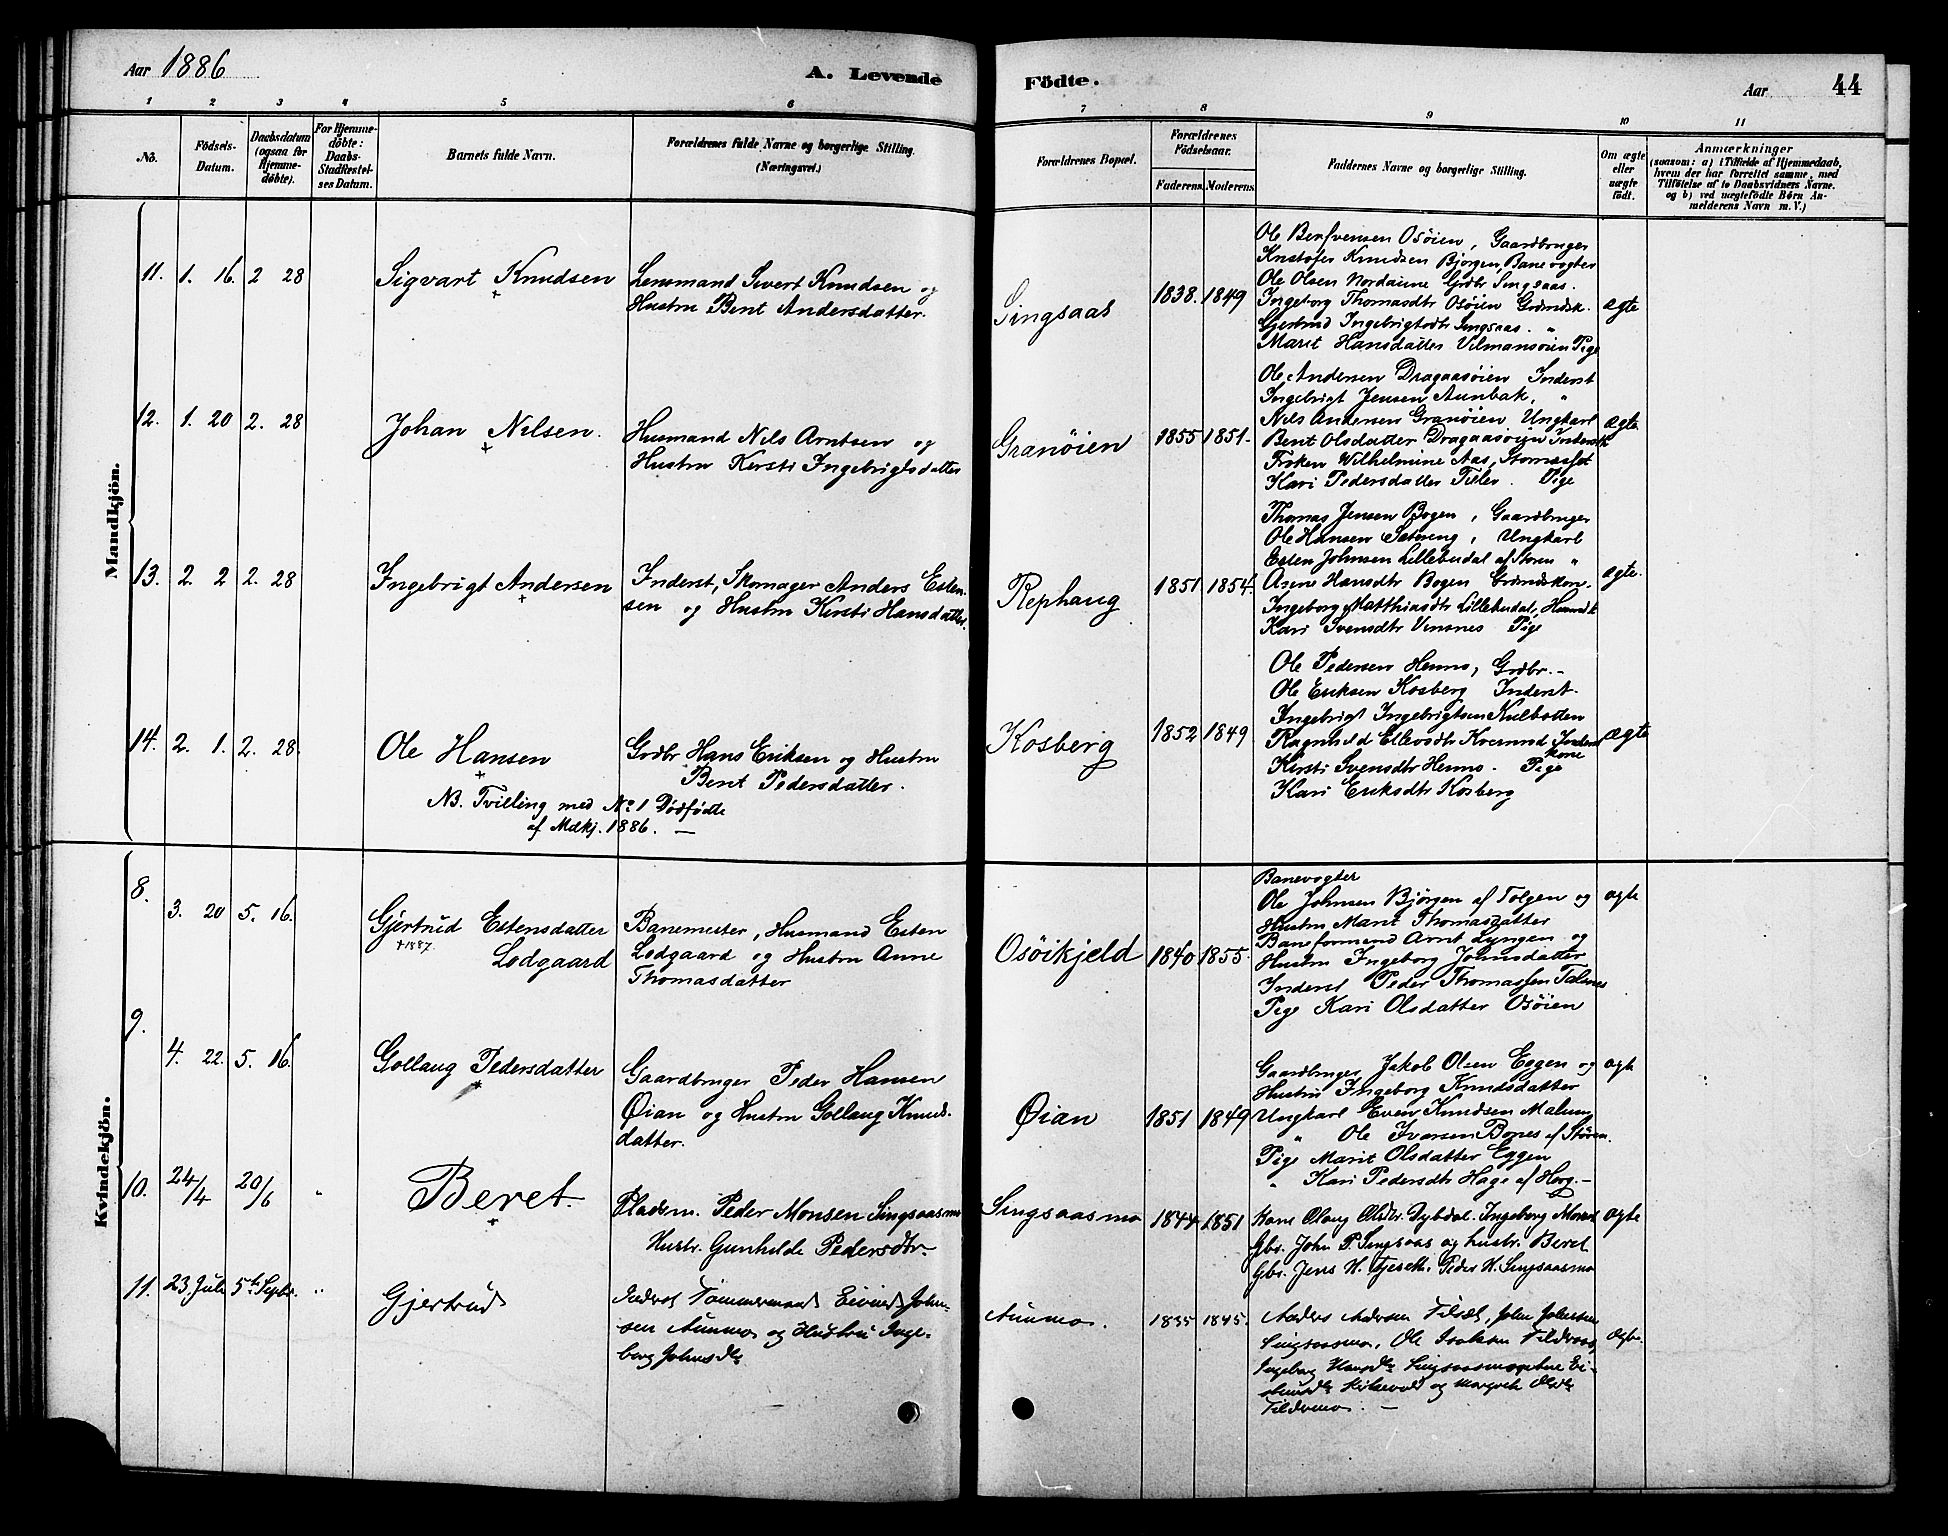 Aar 1886
A. Levende
Födte.
Aar
44
1 2 3 4 5 6 7 8 9 10 11
No.
Födsels-
Datum.
Daabsdatum
(ogsaa for
Hjemme-
döbte).
For Hjemme-
döbte:
Daabs-
Stadfæstel-
ses Datum.
Barnets fulde Navn.
Forældrenes fulde Navne og borgerlige Stilling.
(Næringsvei.)
Forældrenes Bopæl.
Forældrenes
Födselsaar.
Faderens. Moderens.
Faddernes Navne og borgerlige Stilling.
Om ægte
eller
uægte
födt.
Anmærkninger
(saasom: a) i Tilfælde af Hjemmedaab,
hvem der har forrettet samme, med
Tilföielse af to Daabsvidners Navne.
og b) ved uægtefödte Börn An-
melderens Navn m. V.)
Mandkjön.
11. 1. 16. 2 28
Sigvart Knudsen
Lensmand Sivert Knudsen og
Hustru Berit Andersdatter.
Singsaas
1838. 1849
Ole Osöien, Gaardbruger
Kristofer Knudsen Bjørgen, Banevogter
Ole Olsen Grdbr Singsaas.
Ingeborg Thomasdtr Osöien
Gjertrud Ingebrigtsdtr Singsaas. "
Marit Hansdatter Vilmansöien Pige
ægte
12. 1. 20 2. 28
Johan Nilsen.
Husmand Nils Arntsen og
Hustru Kirsti Ingebrigtsdatter
Granöien
1855 1851.
Ole Andersen Dragaasöien Inderst
Ingebrigt Jensen Aunbak, "
Nils Andersen Granöien, Ungkarl
Berit Olsdatter Dragaasöien
Frøken Wilhelmine Aas,
Kari Pedersdatter Tilley. Pige
ægte
13. 2. 2 2. 28
Ingebrigt Andersen
Inderst, Skomager Anders Esten-
sen og Hustru Kirsti Hansdatter.
Rephaug
1851 1854.
Thomas Jensen Bogen, Gaardbruger
Ole Hansen Sætning, Ungkarl
Esten Johnsen Lillebudal af Støren "
Hansdtr Bogen Grdmdskon.
Ingeborg Matthiasdtr Lillebudal,
Kari Svensdtr Vinsnes Pige
ægte.
14. 2. 1. 2. 28.
Ole Hansen
NB. Tvilling med No 1 Dødfødte
af Mdkj. 1886. —
Grdbr Hans Eriksen og Hustru
Berit Pedersdatter.
Kosberg
1852 1849
Ole Pedersen Hemo, Grdbr. -
Ole Eriksen Kosberg Inderst.
Ingebrigt Ingebrigtsen Kulbotten
Ragnhild Ellevsdtr Inderst
kone
Kirsti Svensdtr Hemo. Pige
Kari Eriksdtr Kosberg
ægte
Kvindekjön.
8. 3. 20 5. 16.
Gjertrud Estensdatter
†1887.
Lodgaard
Banemester, Husmand Esten
Lodgaard og Hustru Anne
Thomasdatter
Osöikjeld
1840 1855.
Banevogter
Ole Johnsen Bjørgen af Tolgen og
Hustru Marit Thomasdatter
Baneformand Arnt Lyngen og
Hustru Ingeborg Johnsdatter
Inderst Peder Thomassen Talsnes
Pige Kari Olsdatter Osöien
ægte
9. 4. 22. 5. 16.
Gollaug Pedersdatter
Gaardbruger Peder Hansen
Øian og Hustru Gollaug Knuds-
datter.
Øian
1851 1849
Gaardbruger Jakob Olsen Eggen og
Hustru Ingeborg Knudsdatter
Ungkarl Even Knudsen Malum
" Ole Iversen Bones af Støren.
Pige Marit Olsdatter Eggen
" Kari Pedersdtr Hage af Horg. -
ægte
10. 24/4 20/6 "
Beret.
Pladsm. Peder Monsen Singsaasmo
Hustr. Gunhilde Pedersdtr.
Singsaasmo
1844 1851
Kone Olaug Olsdr. Dybdal. Ingeborg
Gbr. John P. Singsaas og hustr. Beret
Gbr. Jens H. Fjeseth. Peder H. Singsaasmo
ægte
11. 23. Juli 5te Septbr. "
Gjertrud
Inderst Tømmermand Eivind John-
sen Aunmo og Hustru Inge-
borg Johnsdtr
Aunmo.
1835 1845.
Anders Andersen Tilset, John Johnsen
Singsaasmo, Ole Isaksen Tildremo,
Ingeborg Hansdtr Singsaasmo
Kirkevold og Margrete Olsdtr
Tildremo. —
ægte.